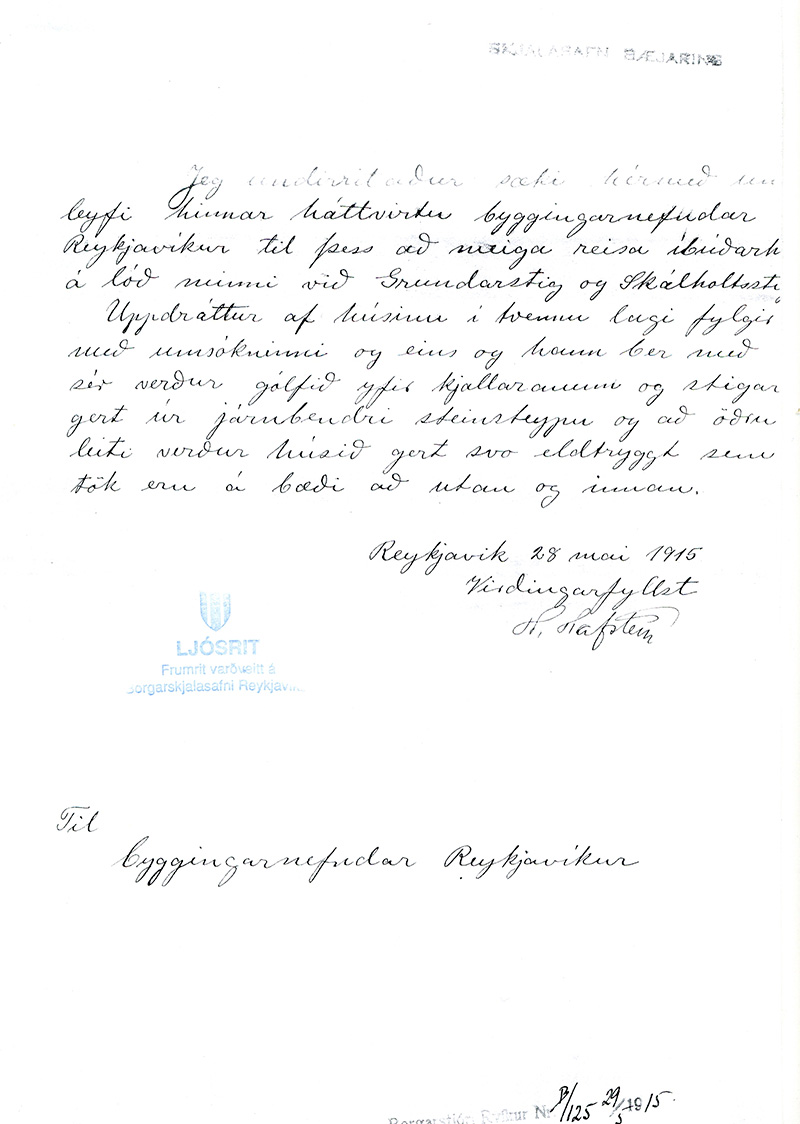 SKJALASAFN BÆJARINS
Jeg undirritaður sæki hérmeð um
leyfi hinnar háttvirtu byggingarnefndar
Reykjavíkur til þess að meiga reisa íbúðarh
á lóð minni við Grundarstig og Skálholtssti
Uppdráttur af húsinu í tvennu lagi fylgir
með umsókninni og eins og hann ber með
sér verður gólfið yfir kjallaranum og stigar
gert úr járnbendri steinsteypu og að öðru
leiti verður húsið gert svo eldtryggt sem
tök eru á bæði að utan og innan.
Reykjavik 28 mai 1915
Virdingarfyllst
H. Hafstein
LJÓSRIT
Frumrit varðveitt á
Borgarskjalasafni Reykjavík
Til
byggingarnefndar Reykjavíkur
Borgarstjóri Reykjavíkur Nr. B/125 29/5 1915.